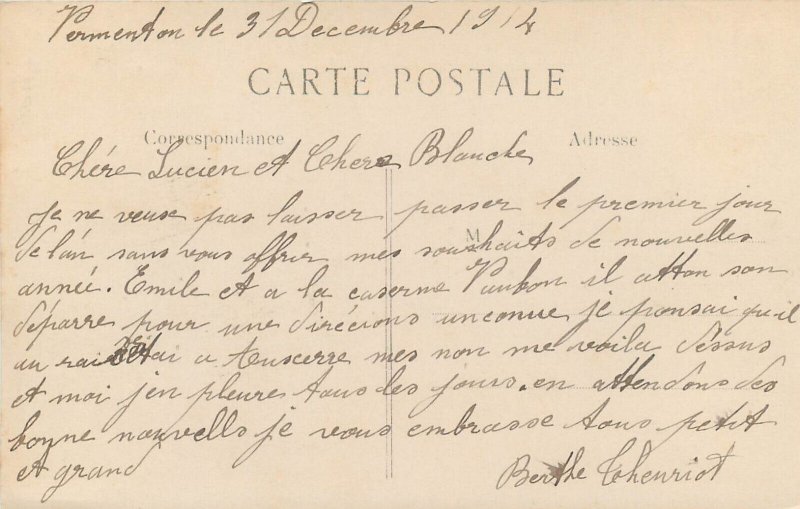 Vermenton le 31 Decembre 1914
CARTE POSTALE
Correspondance
Adresse
Chére Lucien et Chere Blanche
je ne veuse pas laisser passer le premier jour
de lán sans vous offrir mes souhaits de nouvelles
M
anneé. Emile et a la caserne Vauban il atton son
déparre pour une direcions unconue je ponsai qu'il
au rai retai a Auscerre mes non me voila déssus
et moi j'en pleure tous les jours. en attendons des
bonne nouvells je vous embrasse tous petit
et grand
Berthe Thenriot